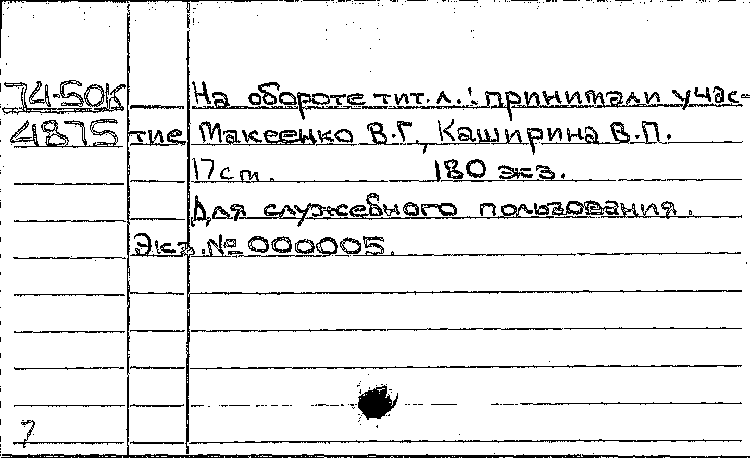 74-50К На обороте тит.л.: принимали учас-
4875 тие Макеенко В.Г., Каширина В.П.
17 ст. 180 экз.
Для служебного пользования.
Экз.№ 000005.
7